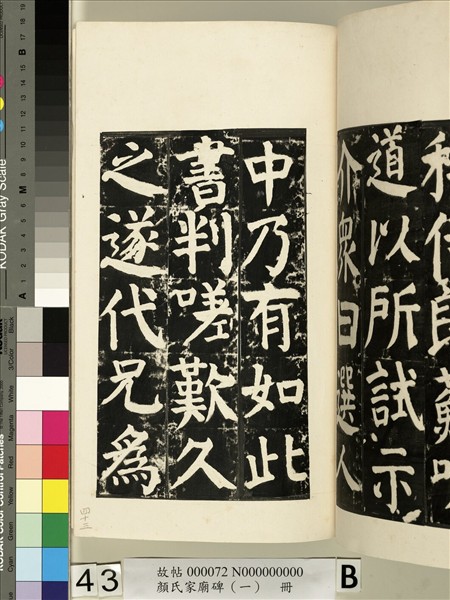 侍郎蘇味
道以所試示
介眾曰選人
中乃有如此
書判嗟歎久
之遂代兄為
四十三
43
故帖 000072 N000000000
顏氏家廟碑(一) 冊
B
KODAK Gray Scale
A
M
B
1 2 3 4 5 6
8 9 10 11 12 13 14 15
17 18 19
KODAK Color Control Patches
Blue
Cyan
Green
Yellow
Red
Magenta
White
3/Color
Black